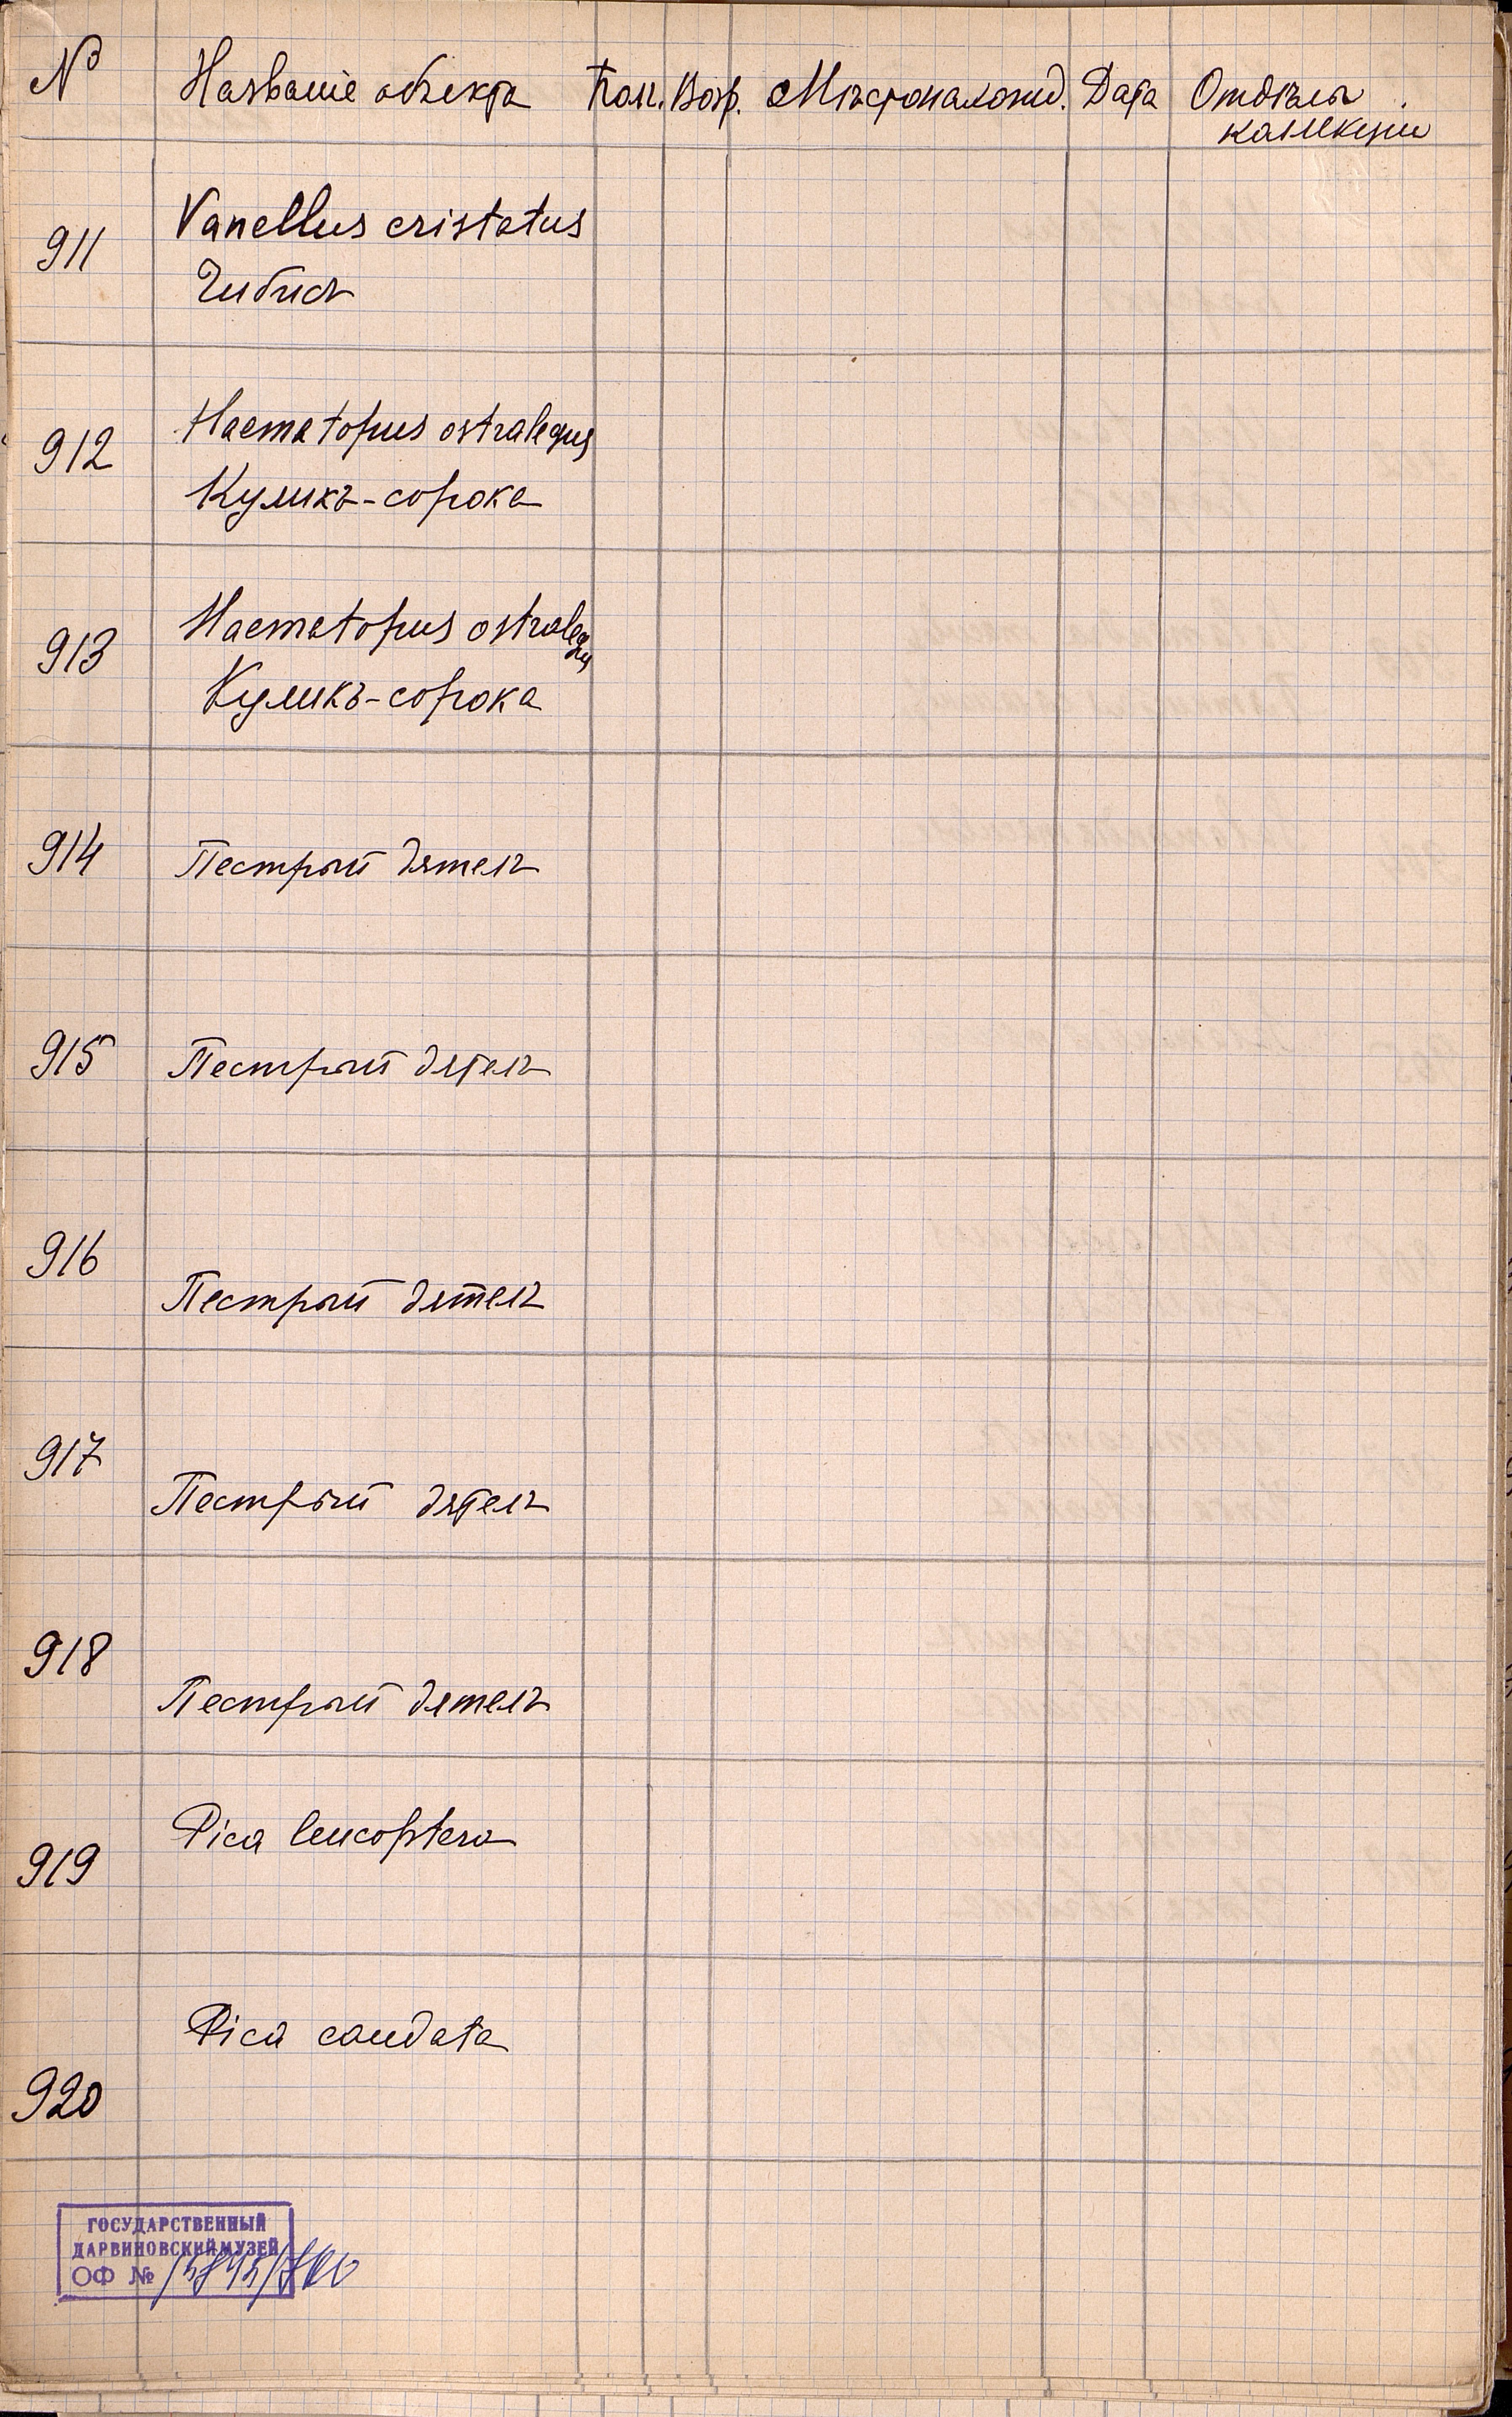 № Названіе объекта Кол. Возр. Мѣстонахожд. Дата Отдѣлы
коллекціи
911
Vanellus cristatus
Чибисъ
912
Haematopus ostralegus
Куликъ-сорока
913
Haematopus ostralegus
Куликъ-сорока
914 Пестрый дятелъ
915 Пестрый дятелъ
916 Пестрый дятелъ
917 Пестрый дятелъ
918 Пестрый дятелъ
919 Pica leucoptera
920 Pica caudata
ГОСУДАРСТВЕННЫЙ
ДАРВИНОВСКИЙ МУЗЕЙ
ОФ №